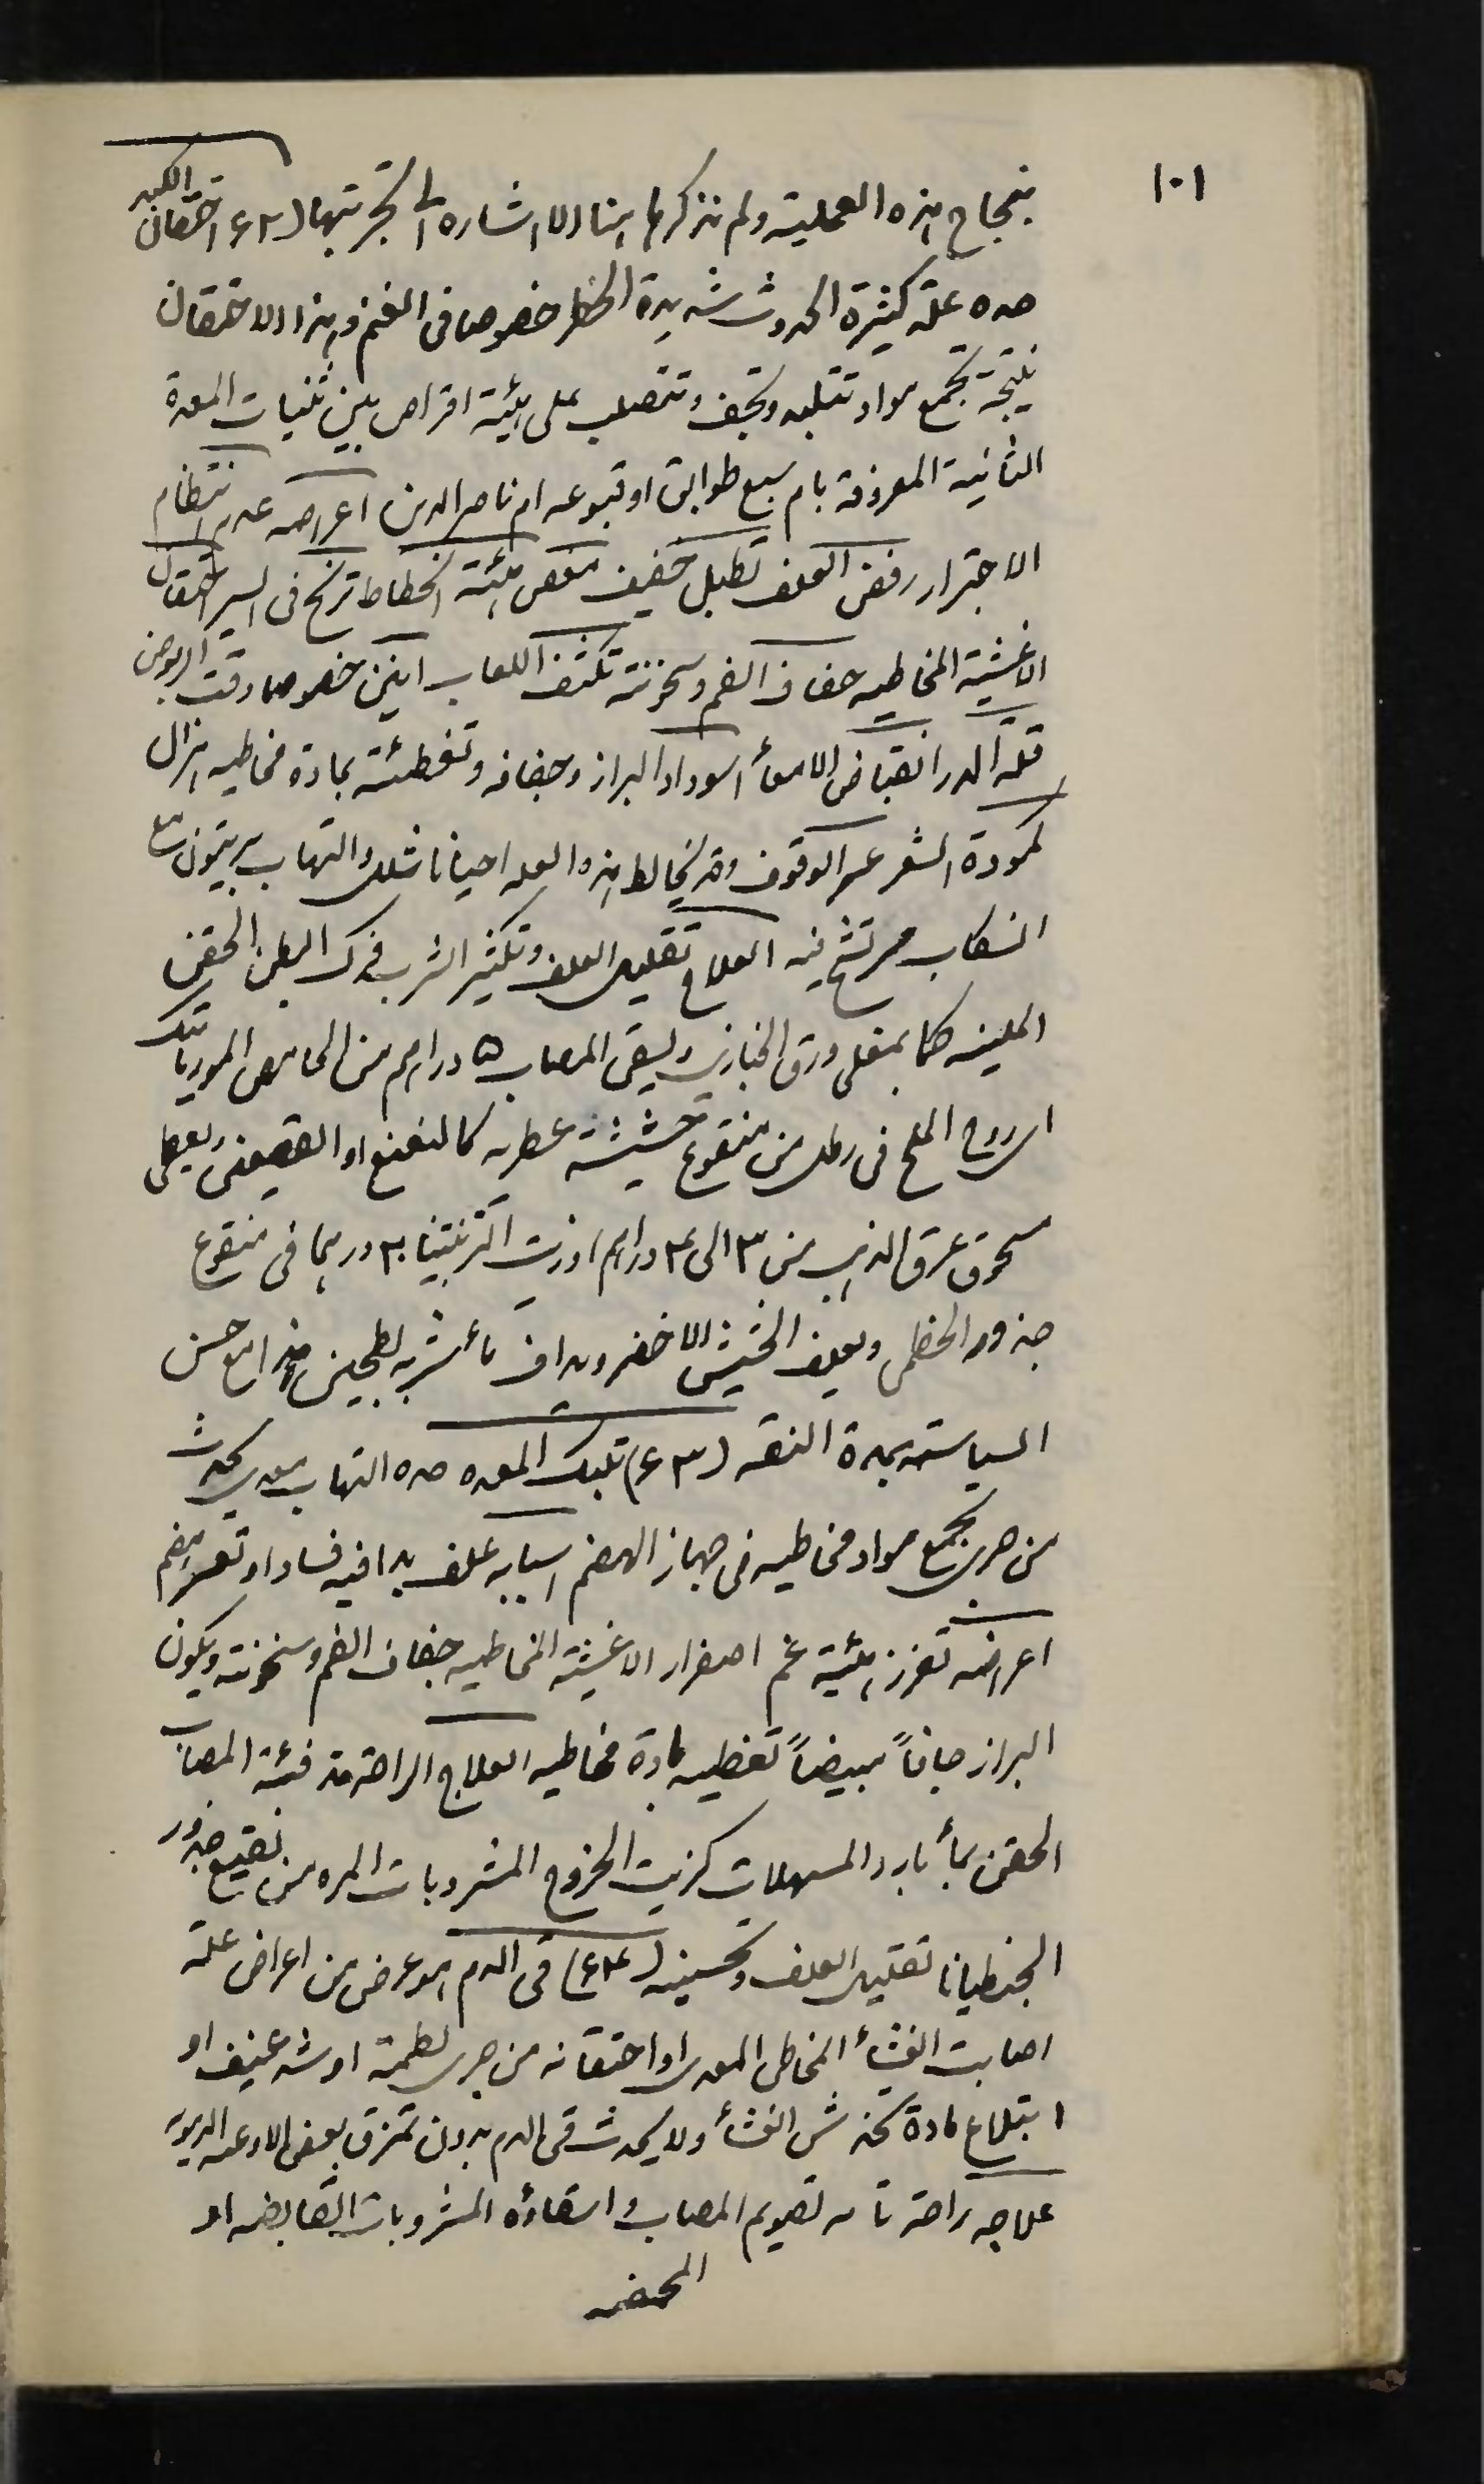 ١٠١
بنجاح هذه العملية ولم نذكرها هنا الا اشاره الى تجربتها (٤٢) احتقان الكبد
هذه علة كثيرة الحدوث شديدة الخطر خصوصا فى الغنم وهذا الاحتقان
نتيجة تجمع مواد تتلبد وتجف وتتصلب على هيئة اقراص بين ثنيات المعدة
الثانية المعروفة بام سبع طوابق او قبوعه ام ناصر الدين اعراضه عدم انتظام
الاجترار رفض العلف تطبل خفيف مغص هيئة انحطاط ترنح فى السير احتقان
الاغشية المخاطيه جفاف الفم وسخونته تكثف اللعاب انين خصوصا وقت الربوض
قلة الدر انقباض الامعأ اسوداد البراز وجفافه وتغطئته بمادة مخاطيه هزال
كمودة الشعر عسر الوقوف وقد يخالط هذه العله احيانا شلل والتهاب بريتون مع
انسكاب مرتشح فيه العلاج تقليل العلف وتكثير الشرب فرك البطن الحقن
الملينه كما بمغلى ورق الخبازى ويسقى المصاب ٥ دراهم من الحامض المورياتيك
اى روح الملح فى رطل من منقوع حشيشة عطريه كالنعنع او القصعين ويعطى
مسحوق عرق الذهب من ٣ الى ٤ دراهم او زيت التربنتينا ٢٠ درهما فى منقوع
جذور الخطمى ويعلف الحشيش الاخضر ويداف مأ شربه بطحين هذا مع حسن
السياسة بمدة النقه (٤٣) تلبك المعده هذه التهاب معدى يحدث
من جرى تجمع مواد مخاطيه فى جهاز الهضم اسبابه علف بدا فيه فساد او تعسر هضم
اعراضه تعزز هيئة غم اصفرار الاغشية المخاطيه جفاف الفم وسخونته ويكون
البراز جافاً مبيضاً تغطيه مادة مخاطيه العلاج الراحة تدفئة المصاب
الحقن بمأ بارد المسهلات كزيت الخروع المشروبات المره من نقيع جذور
الجنطيانا تقليل العلف وتحسينه (٤٤) قى الدم هو عرض من اعراض علة
اصابت الغشأ المخاطى المعدى او احتقانه من جرى لطمة او شد عنيف او
ابتلاع مادة تخدش الغشأ ولا يحدث قى الدم بدون تمزق بعض الاوعيه الدمويه
علاجه راحة تامه تصويم المصاب واسقاؤه المشروبات القابضه او
المحمضه